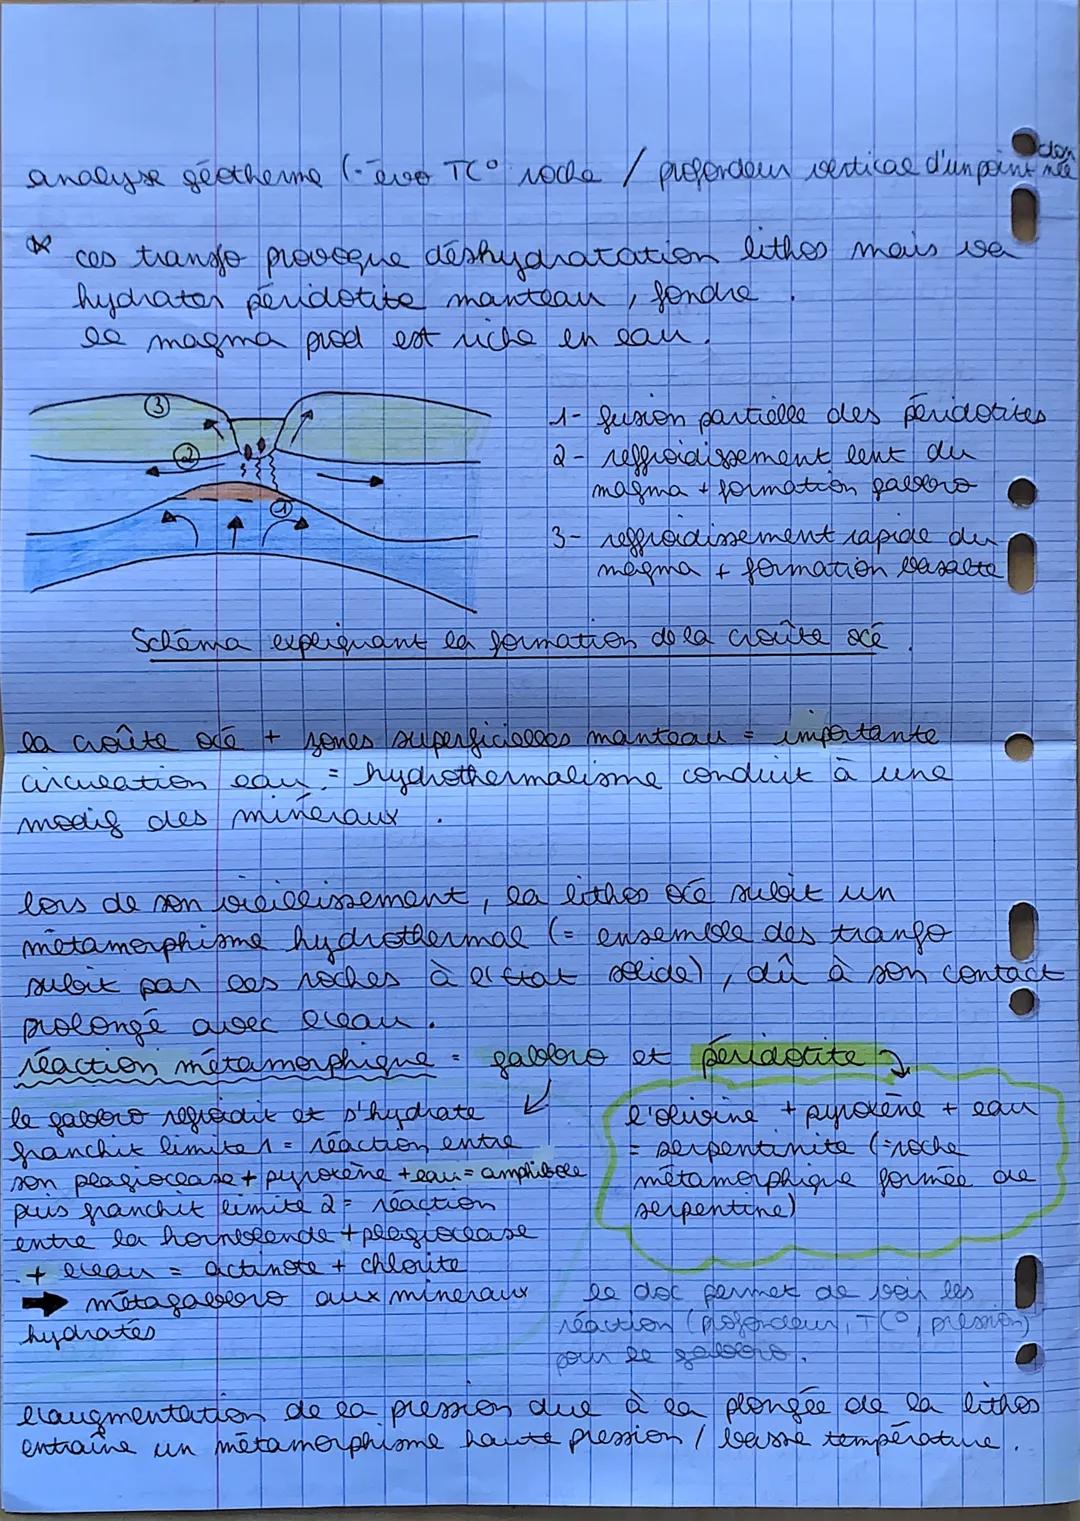 analyse géotherme (= évo TC° roche / profondeur verticale d'un point donnée
* ces transfo provoque déshydratation lithos mais va
hydrater péridotite manteau, fondre.
le magma prod est riche en eau.
3
2
1
1- fusion partielle des péridotites
2- reffroidissement lent du
magma + formation gabbro
3- reffroidissement rapide du
magma + formation basalte
Schéma expliquant la formation de la croûte océ.
la croûte océ + zones superficielles manteau = importante
circulation eau = hydrothermalisme conduit à une
modif des minéraux.
lors de son vieillissement, la lithos océ subit un
métamorphisme hydrothermal (= ensemble des transfo
subit par les roches à l'état solide), dû à son contact
prolongé avec l'eau.
réaction métamorphique = gabbro et péridotite
le gabbro refroidit et s'hydrate
franchit limite 1 = réaction entre
son plagioclase + pyroxène + eau = amphibole
puis franchit limite 2 = réaction
entre la hornblende + plagioclase
+ l'eau = actinote + chlorite
➡ métagabbro aux minéraux
hydratés
l'olivine + pyroxène + eau
= serpentinite (= roche
métamorphique formée de
serpentine)
le doc permet de voir les
réaction (profondeur, TC°, pression)
pour le gabbro.
l'augmentation de la pression due à la plongée de la lithos
entraîne un métamorphisme haute pression / basse température.